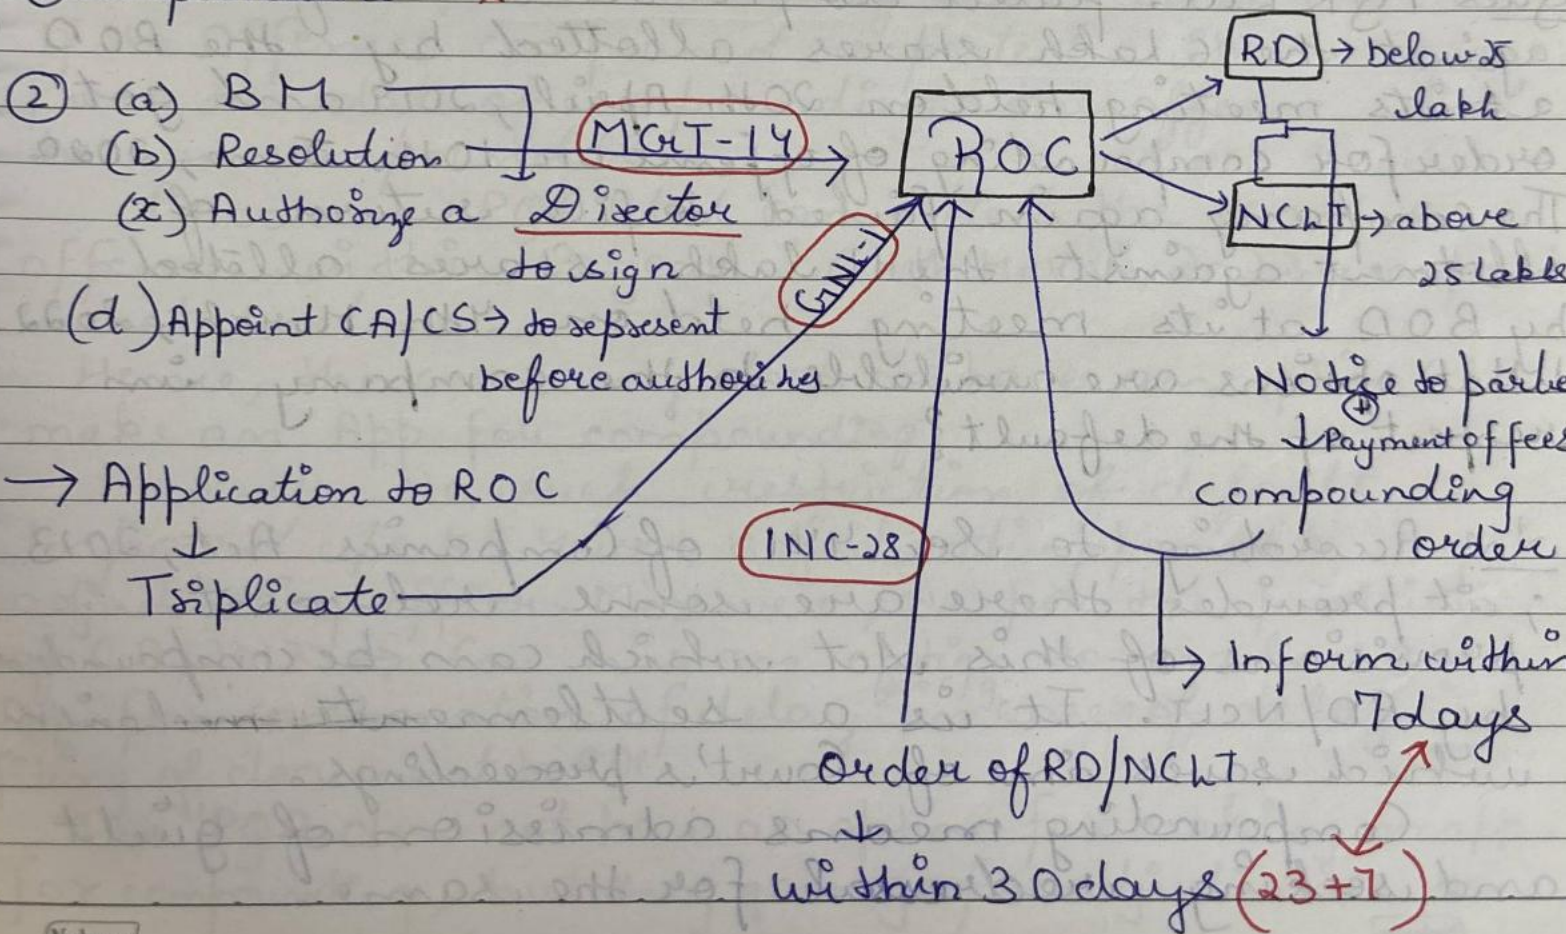 ② (a) BM
(b) Resolution
MGT-14
(x) Authorize a Director
to sign
(d) Appoint CA/CS → to represent
before authorities
→ Application to ROC
↓
Triplicate
GNL-1
ROC
RD → below 25
lakh
NCLT → above
25 Lakhs
Notice to partie
+
↓ Payment of fees
compounding
order
INC-28
→ Inform within
7 days
Order of RD/NCLT
↓
within 30 days (23+7)